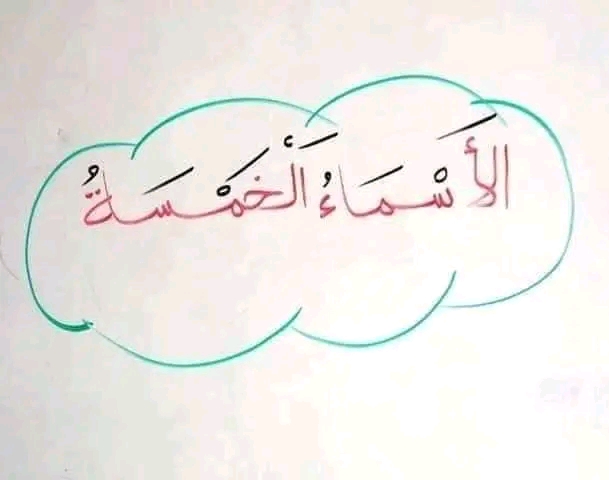 الأَسْمَاءُ الْخَمْسَةُ